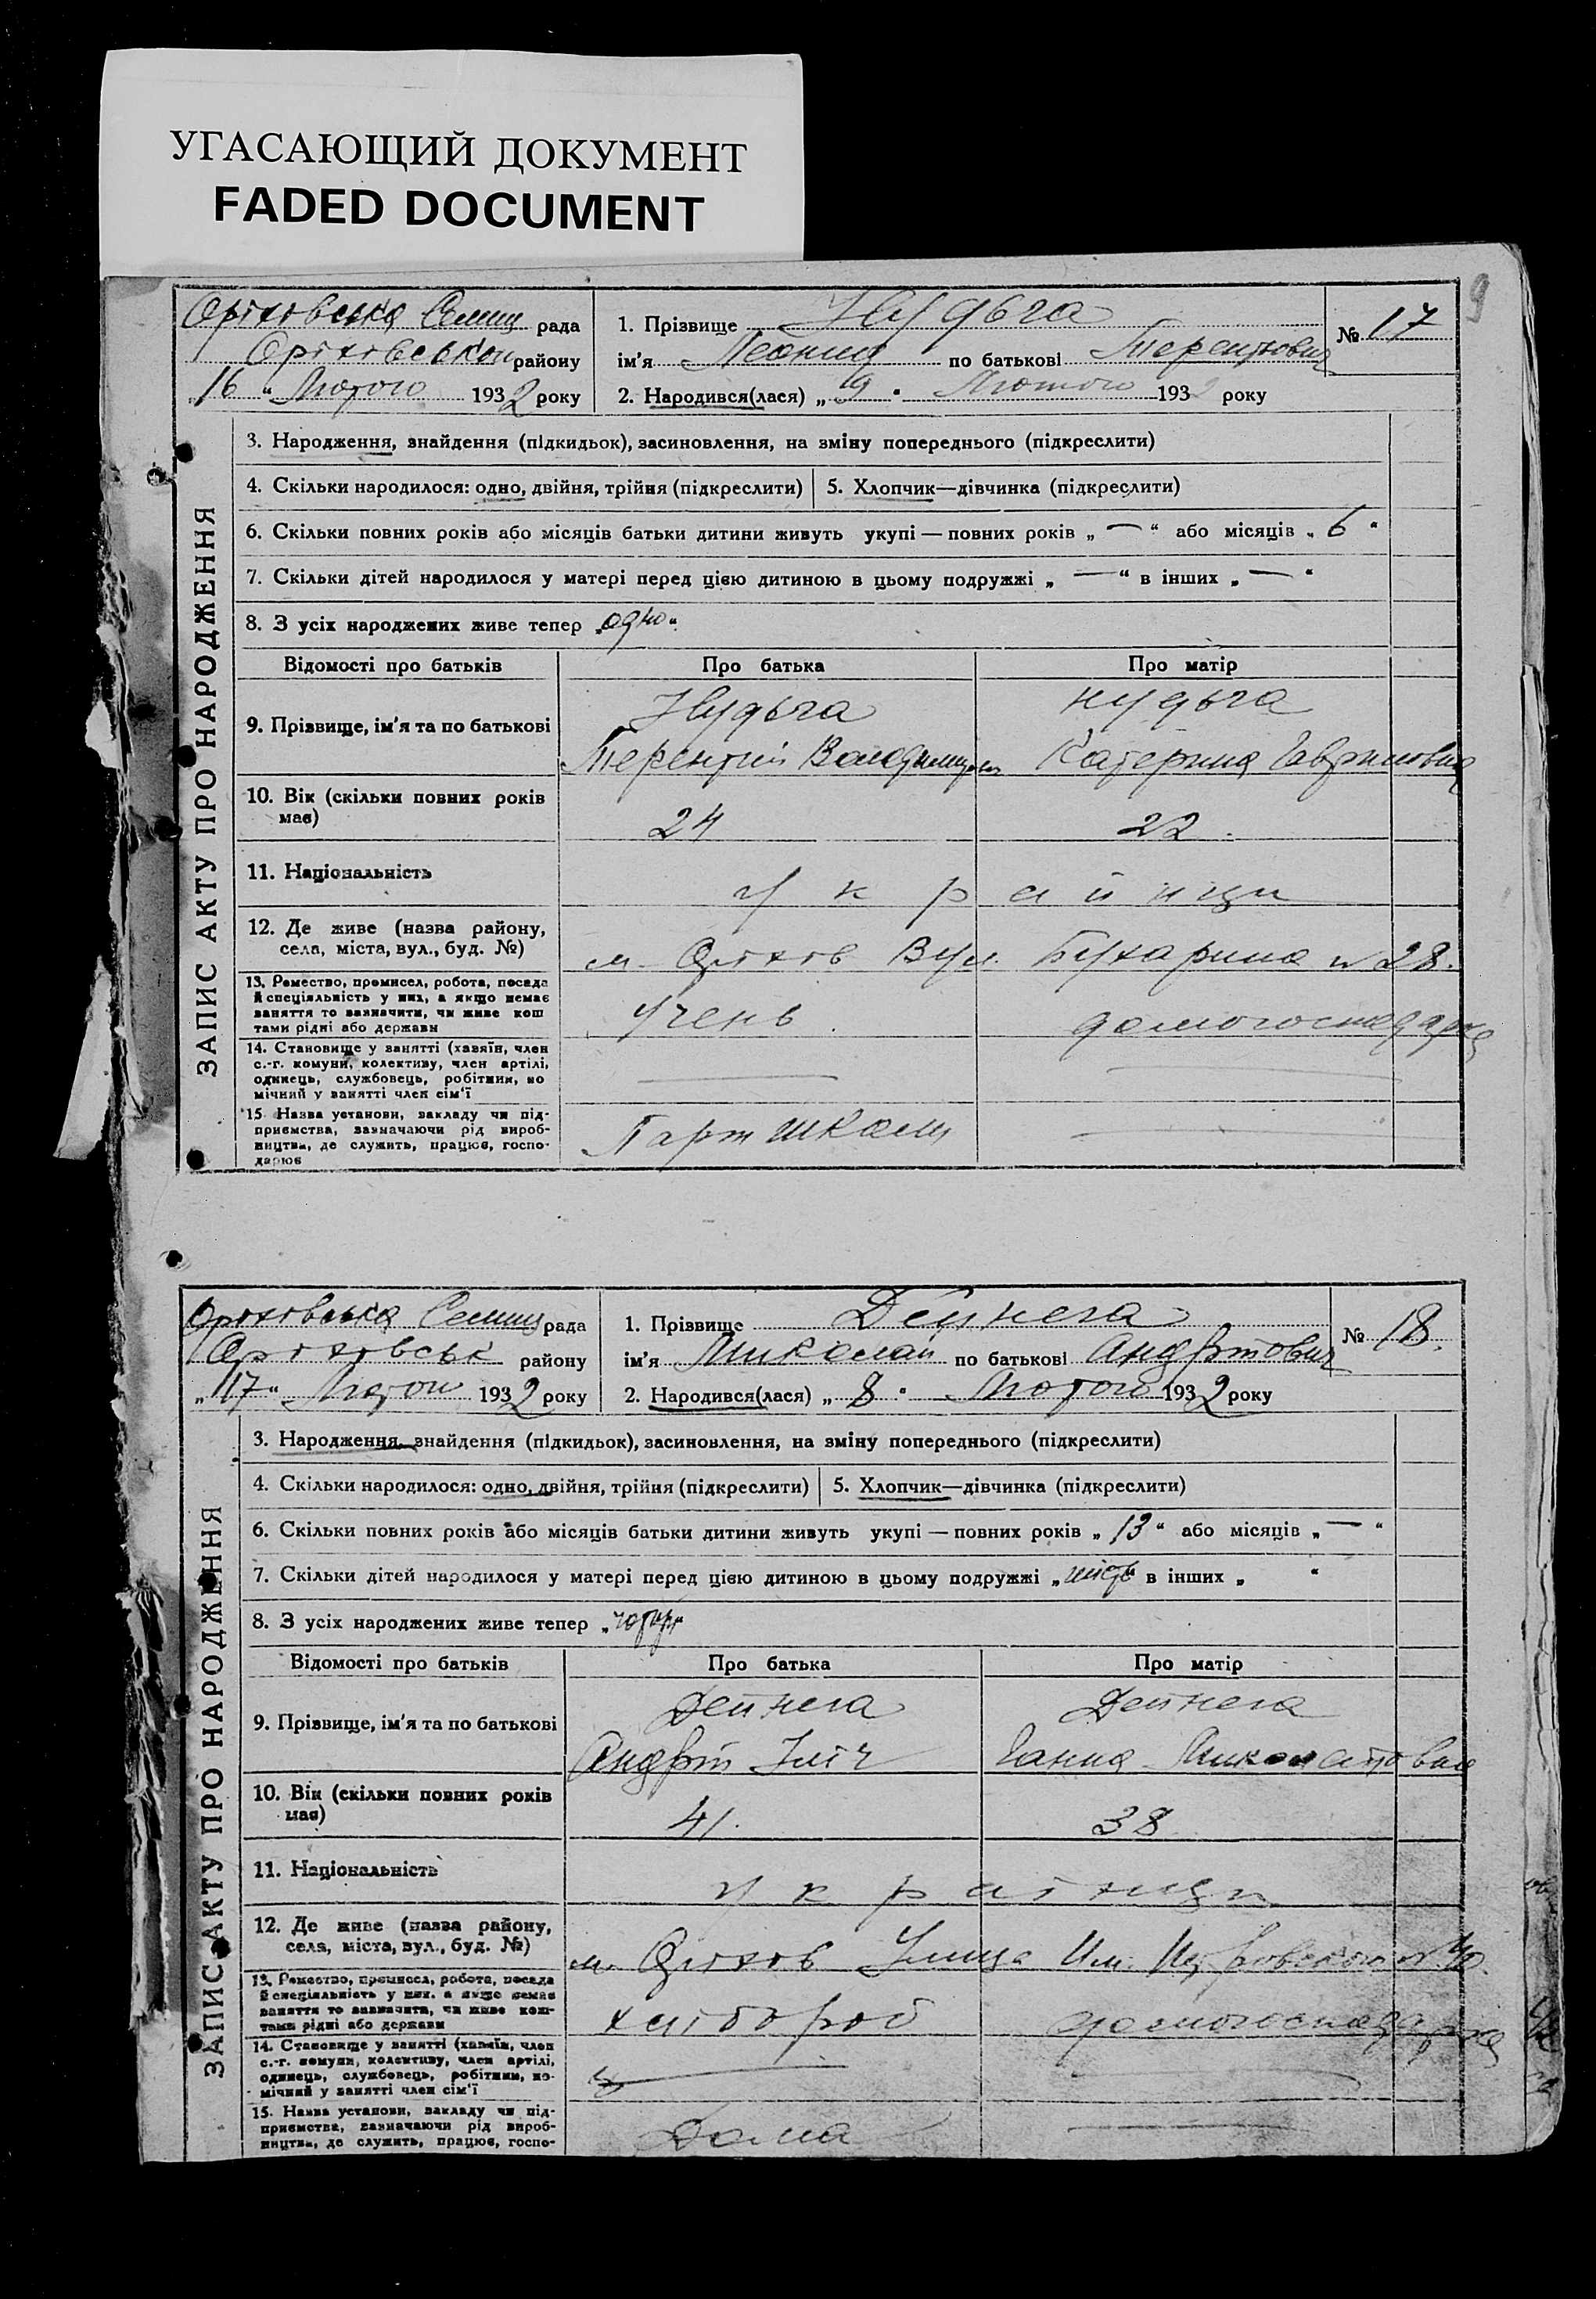 УГАСАЮЩИЙ ДОКУМЕНТ
FADED DOCUMENT
9
Оріховська Селищ рада
Оріховськои району
„16 “ Лютого 1932 року
1. Прізвище Нудьга
ім'я Леонид по батькові Терентович
2. Народився(лася) „ 9 “ Лютого 1932 року
№ 17
ЗАПИС АКТУ ПРО НАРОДЖЕННЯ
3. Народження, знайдення (підкидьок), засиновлення, на зміну попереднього (підкреслити)
4. Скільки народилося: одно, двійня, трійня (підкреслити) 5. Хлопчик—дівчинка (підкреслити)
6. Скільки повних років або місяців батьки дитини живуть укупі — повних років „ — “ або місяців „ 6 “
7. Скільки дітей народилося у матері перед цією дитиною в цьому подружжі „ — “ в інших „ — “
8. З усіх народжених живе тепер „одно“
Відомості про батьків Про батька Про матір
9. Прізвище, ім'я та по батькові
Нудьга
Терентий
нудьга
Катерина Гавриловна
10. Вік (скільки повних років має)
24 22
11. Національність
украйнци
12. Де живе (назва району,
села, міста, вул., буд. №)
м. Оріхов Вул. Бухарина № 28.
13. Ремество, промисел, робота, посада
й спеціяльність у них, а якщо немає
заняття то зазначити, чи живе кош
тами рідні або держави
Учень домогосподарка
14. Становище у занятті (хазяїн, член
с.-г. комуни, колективу, член артілі,
одинець, службовець, робітник, по
мічний у занятті член сім'ї
— —
15. Назва установи, закладу чи під-
приємства, зазначаючи рід вироб-
ництва, де служить, працює, госпо-
дарює
Парт школи —
Оріховська Селищ рада
Оріховськ району
„17“ Лютого 1932 року
1. Прізвище Дейнега
ім'я Миколай по батькові Андріович
2. Народився(лася) „ 8 “ Лютого 1932 року
№ 18.
ЗАПИС АКТУ ПРО НАРОДЖЕННЯ
3. Народження, знайдення (підкидьок), засиновлення, на зміну попереднього (підкреслити)
4. Скільки народилося: одно, двійня, трійня (підкреслити) 5. Хлопчик—дівчинка (підкреслити)
6. Скільки повних років або місяців батьки дитини живуть укупі — повних років „ 13 “ або місяців „ — “
7. Скільки дітей народилося у матері перед цією дитиною в цьому подружжі „ “ в інших „ “
8. З усіх народжених живе тепер „ “
Відомості про батьків Про батька Про матір
9. Прізвище, ім'я та по батькові
Дейнега
Андрій Іліч
Дейнега
Ганна
10. Вік (скільки повних років має)
41. 38
11. Національність
украінци
12. Де живе (назва району,
села, міста, вул., буд. №)
м. Оріхов Улица Им.
13. Ремество, промисел, робота, посада
й спеціяльність у них, а якщо немає
заняття то зазначити, чи живе кош-
тами рідні або держави
хлібороб домогосподарка
14. Становище у занятті (хазяїн, член
с.-г. комуни, колективу, член артілі,
одинець, службовець, робітник, по-
мічний у занятті член сім'ї
— —
15. Назва установи, закладу чи під-
приємства, зазначаючи рід вироб-
ництва, де служить, працює, госпо-
Дома —